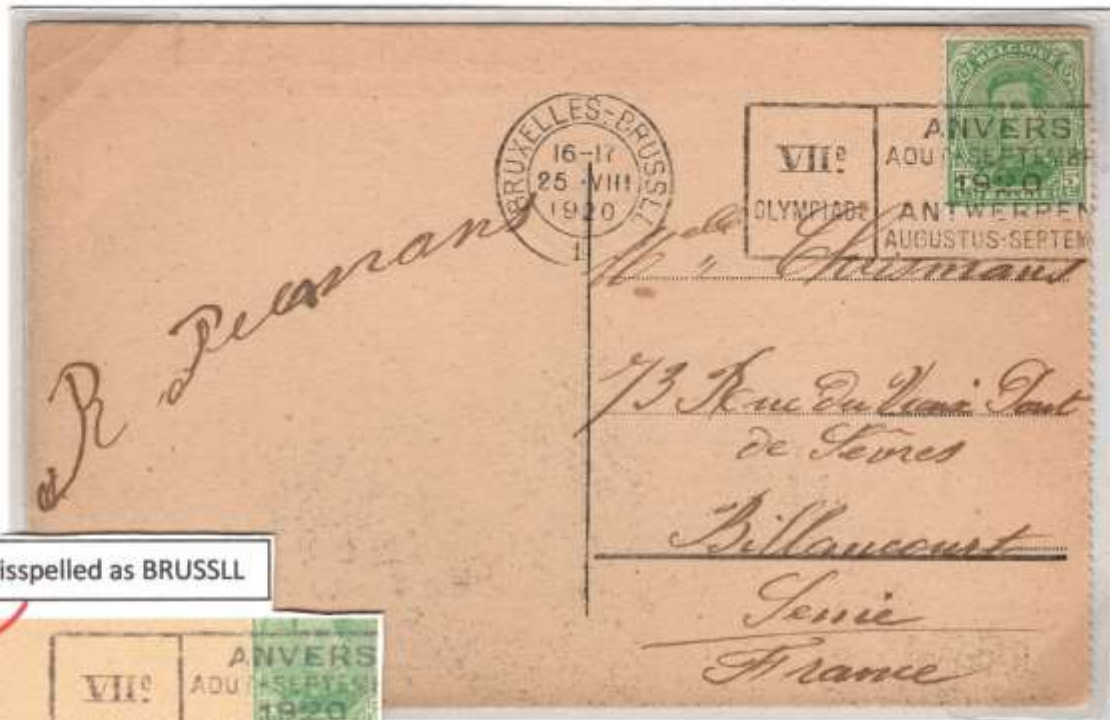 BELGIQUE
BRUXELLES-BRUSSLL
16-17
25 VIII
1920
1
VIIe
OLYMPIADE
ANVERS
AOUT-SEPTEMBR
1920
ANTWERPEN
AUGUSTUS-SEPTEM
5
R
Melle
73 Rue du Vieux Pont
de Sèvres
Billancourt
Seine
France
isspelled as BRUSSLL
VIIe
ANVERS
AOUT-SEPTEM
1920